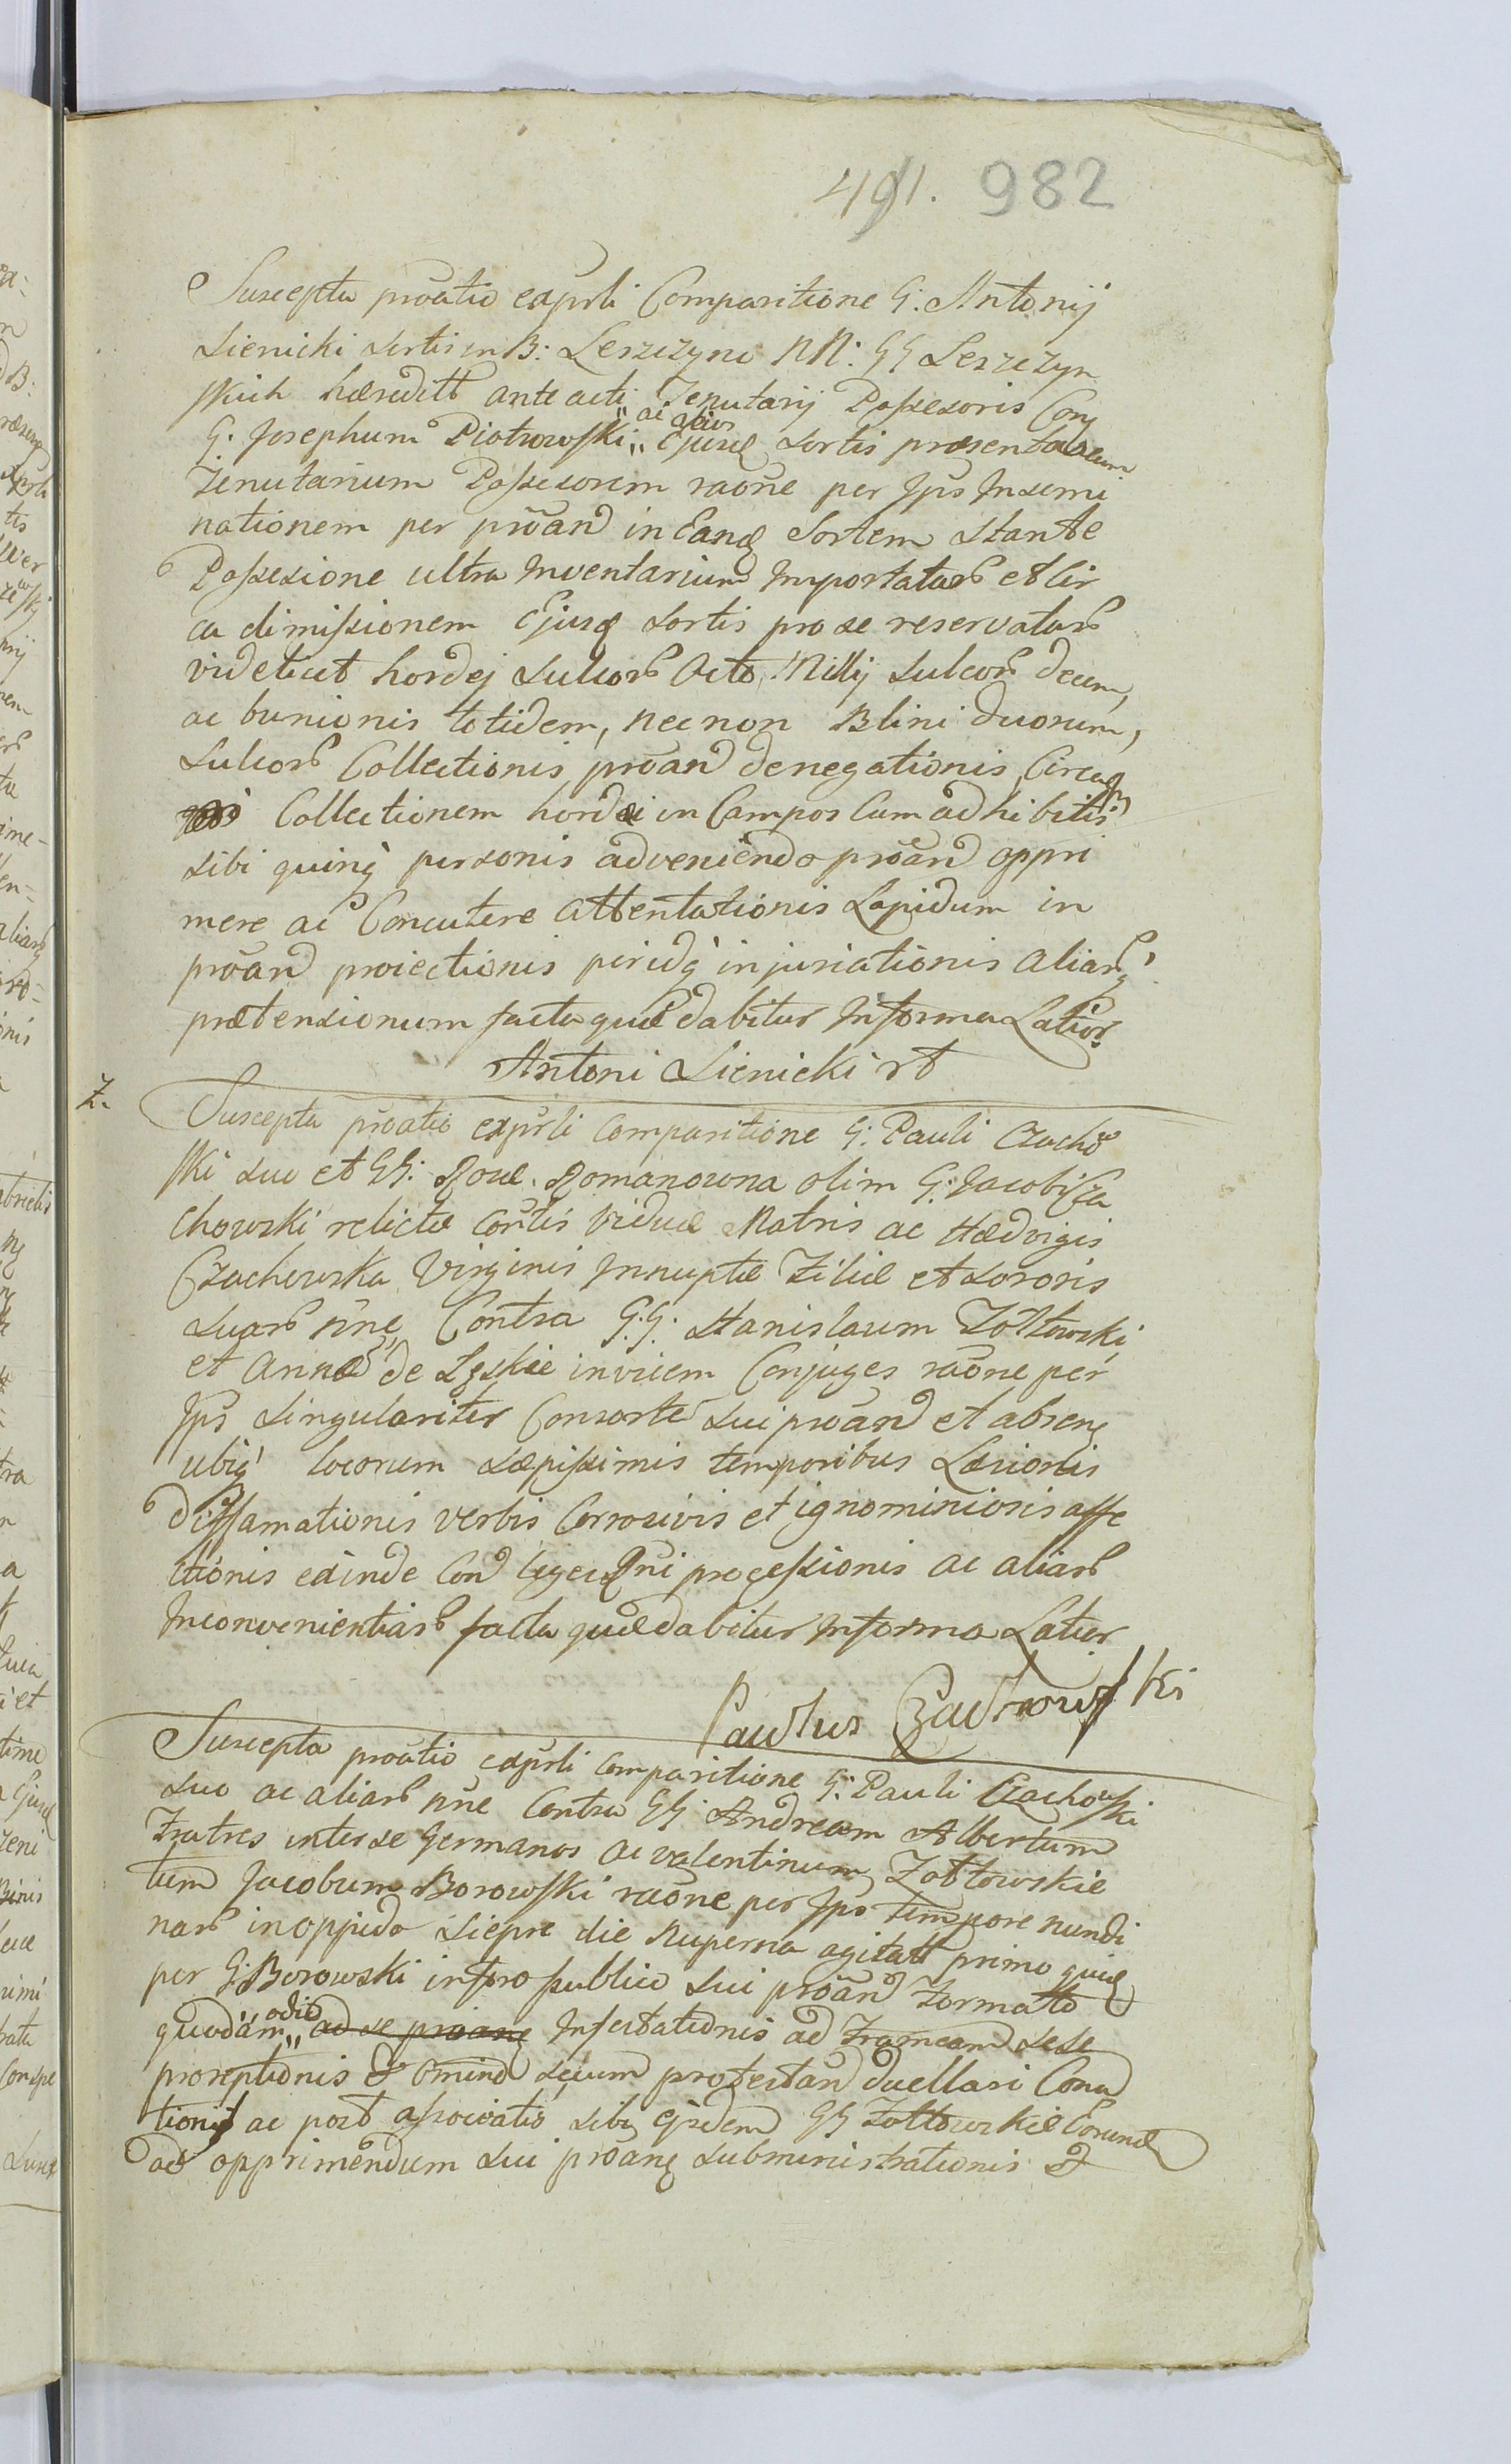 491. 982
Suscepta proatio expsti Comparitione G. Antonij
Sienicki Sortis in B: Leszczyno NN: GG Leszczyn
skich hæreditt ante acti Tenutarij Possesoris Con
G. Josephum Piotrowski „ ac alios „ Ejusd Sortis præsentaneum
Tenutarium Possesorem raone per Ips Insemi
nationem per proand in Eand Sortem Stante
Possesione ultra Inventarium Importatar et Cir
ca dimissionem Ejusd Sortis pro se reservatar
videlicet hordej Sulcor Octo, Milij Sulcor decem,
ac bunionis totidem, nec non Blini duorum,
Sulcor Collectionis proand denegationis, Circaq
Collectionem hordei in Campos Cum adhibitis
Sibi quinq personis adveniendo proand oppri
mere ac Concutere Attentationis Lapidum in
proand proiectionis peridq injuriationis aliarq
prætensionum facta quæ dabitur In forma Latior.
Antoni Sienicki rt
7.
Suscepta proatio expsti Comparitione G. Pauli Czacho
ski Suo et GG: Romanowna olim G. Jacobi Cza
chowski relictæ Cortis Viduæ Matris ac Hædvigis
Czachowska Virginis Innuptæ Filiæ et Sororis
Suar nne Contra G.G. Stanislaum Zołtowski
et Annã de Lęskie invicem Conjuges raone per
Ips Singulariter Consorte Sui proand et absenq
ubiq locorum Sæpissimis temporibus Læsionis
Diffamationis verbis Corrosivis et ignominiosis affe
ctionis exinde Cond processionis ac aliar
Inconvenientiar facta quæ dabitur In forma Latior
Paulus Czachowski
Suscepta proatio expsti Comparitione G: Pauli Czachowski
Suo ac aliar nne Contra GG Andream Albertum
Fratres inter se Germanos ac Valentinum Zołtowskie
tum Jacobum Borowski raone per Ips tempore nundi
nar in oppido Siepre die nuperna agitatt primo quid
per G. Borowski in foro publico Sui proand Formatto
quodam „ odio „ ad se proanq Infestationis ad Frameam Sese
proreptionis & Omino Secum protestand duellari Cona
tionis ac post associatio Sibi ejsdem GG Zołtowskie Corund
ad opprimendum Sui proanq Subministrationis &